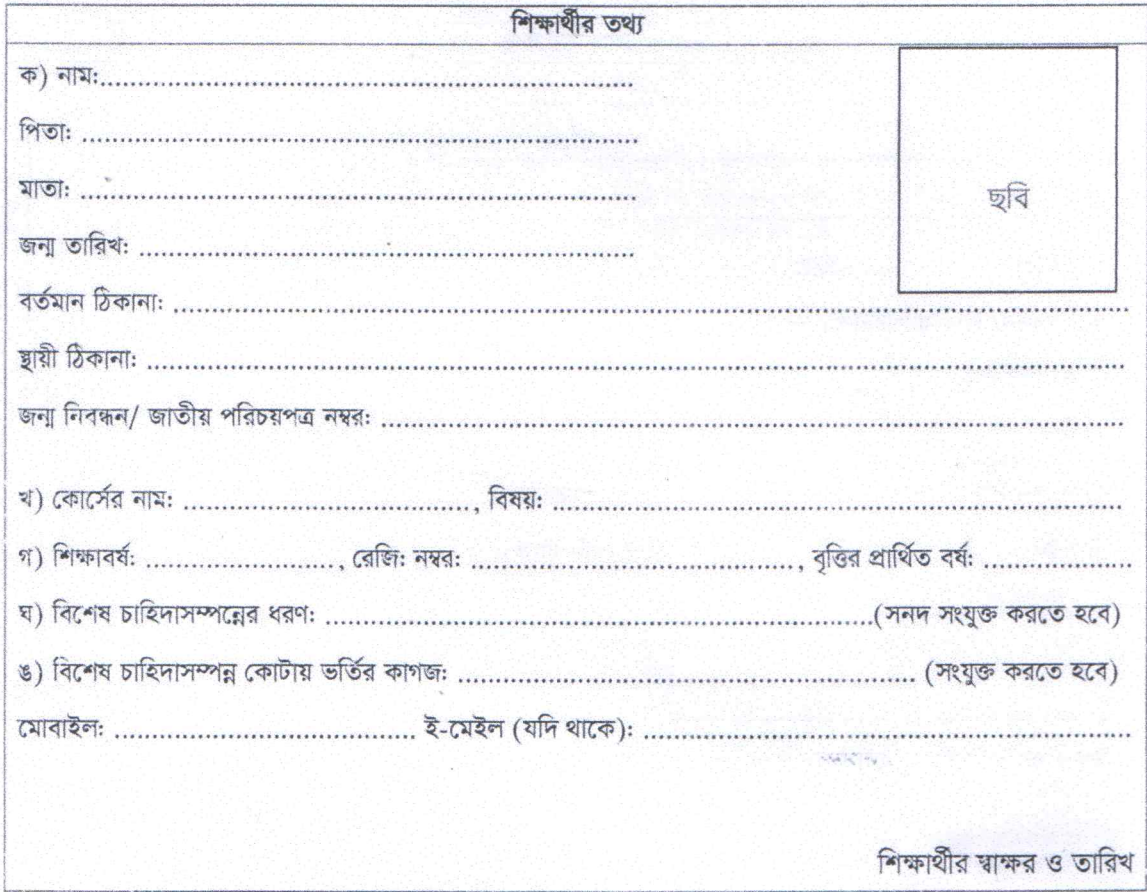 শিক্ষার্থীর তথ্য
ক) নাম:..............................................................................
পিতা: ..............................................................................
মাতা: ..............................................................................
ছবি
জন্ম তারিখ: ......................................................................
বর্তমান ঠিকানা: ..............................................................................................................
স্থায়ী ঠিকানা: ..............................................................................................................
জন্ম নিবন্ধন/ জাতীয় পরিচয়পত্র নম্বর: ..............................................................................
খ) কোর্সের নাম: ........................................, বিষয়: ..............................................................
গ) শিক্ষাবর্ষ: ..........................., রেজি: নম্বর: .............................................., বৃত্তির প্রার্থিত বর্ষ: .....................
ঘ) বিশেষ চাহিদাসম্পন্নের ধরণ: ..............................................................................(সনদ সংযুক্ত করতে হবে)
ঙ) বিশেষ চাহিদাসম্পন্ন কোটায় ভর্তির কাগজ: ................................................................. (সংযুক্ত করতে হবে)
মোবাইল: ........................................... ই-মেইল (যদি থাকে): ......................................................................
শিক্ষার্থীর স্বাক্ষর ও তারিখ